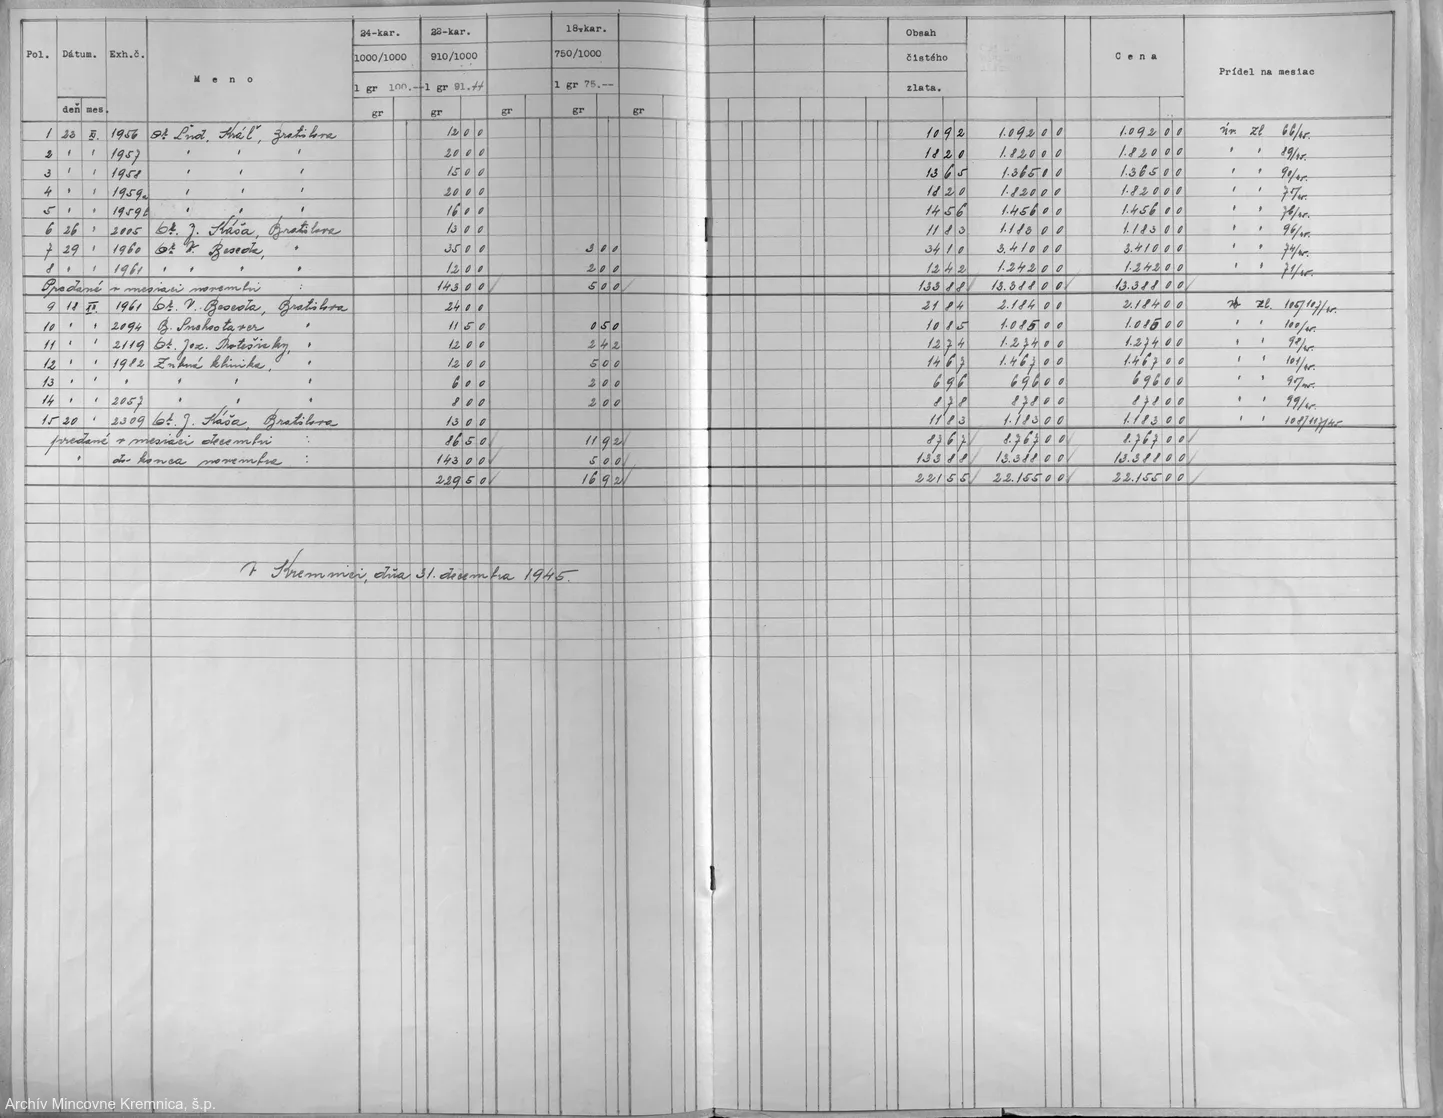 24-kar. 22-kar. 18-kar. Obsah
Pol. Dátum. Exh.č. 1000/1000 910/1000 750/1000 čistého Cena
Meno Prídel na mesiac
1 gr 100.-- 1 gr 91.-- 1 gr 75.-- zlata.
deň mes. gr gr gr gr gr
1 23 XI. 1956 Dr. Ľud. Kráľ, Bratislava 12 00 10 92 1.092 00 1.092 00 úr. Zl 66/45.
2 " " 1957 " " " 20 00 18 20 1.820 00 1.820 00 " " 89/45.
3 " " 1958 " " " 15 00 13 65 1.365 00 1.365 00 " " 90/45.
4 " " 1959a " " " 20 00 18 20 1.820 00 1.820 00 " " 77/45.
5 " " 1959b " " " 16 00 14 56 1.456 00 1.456 00 " " 76/45.
6 26 " 2005 Dr. J. Káša, Bratislava 13 00 11 83 1.183 00 1.183 00 " " 96/45.
7 29 " 1960 Dr. V. Beseda, " 35 00 3 00 34 10 3.410 00 3.410 00 " " 74/45.
8 " " 1961 " " " " 12 00 2 00 12 42 1.242 00 1.242 00 " " 71/45.
Predané v mesiaci novembri : 143 00 5 00 133 88 13.388 00 13.388 00
9 18 XII. 1961 Dr. V. Beseda, Bratislava 24 00 21 84 2.184 00 2.184 00 Zl. 105/107/45.
10 " " 2094 B. " 11 50 0 50 10 85 1.085 00 1.085 00 " " 100/45.
11 " " 2119 Dr. Joz. " 12 00 2 42 12 74 1.274 00 1.274 00 " " 98/45.
12 " " 1982 Zubná klinika, " 12 00 5 00 14 67 1.467 00 1.467 00 " " 101/45.
13 " " " " " " 6 00 2 00 6 96 696 00 696 00 " " 97/45.
14 " " 2057 " " " 8 00 2 00 8 78 878 00 878 00 " " 99/45.
15 20 " 2309 Dr. J. Káša, Bratislava 13 00 11 83 1.183 00 1.183 00 " " 108/117/45
predané v mesiaci decembri : 86 50 11 92 87 67 8.767 00 8.767 00
" do konca novembra : 143 00 5 00 133 88 13.388 00 13.388 00
229 50 16 92 221 55 22.155 00 22.155 00
V Kremnici, dňa 31. decembra 1945.
Archív Mincovne Kremnica, š.p.